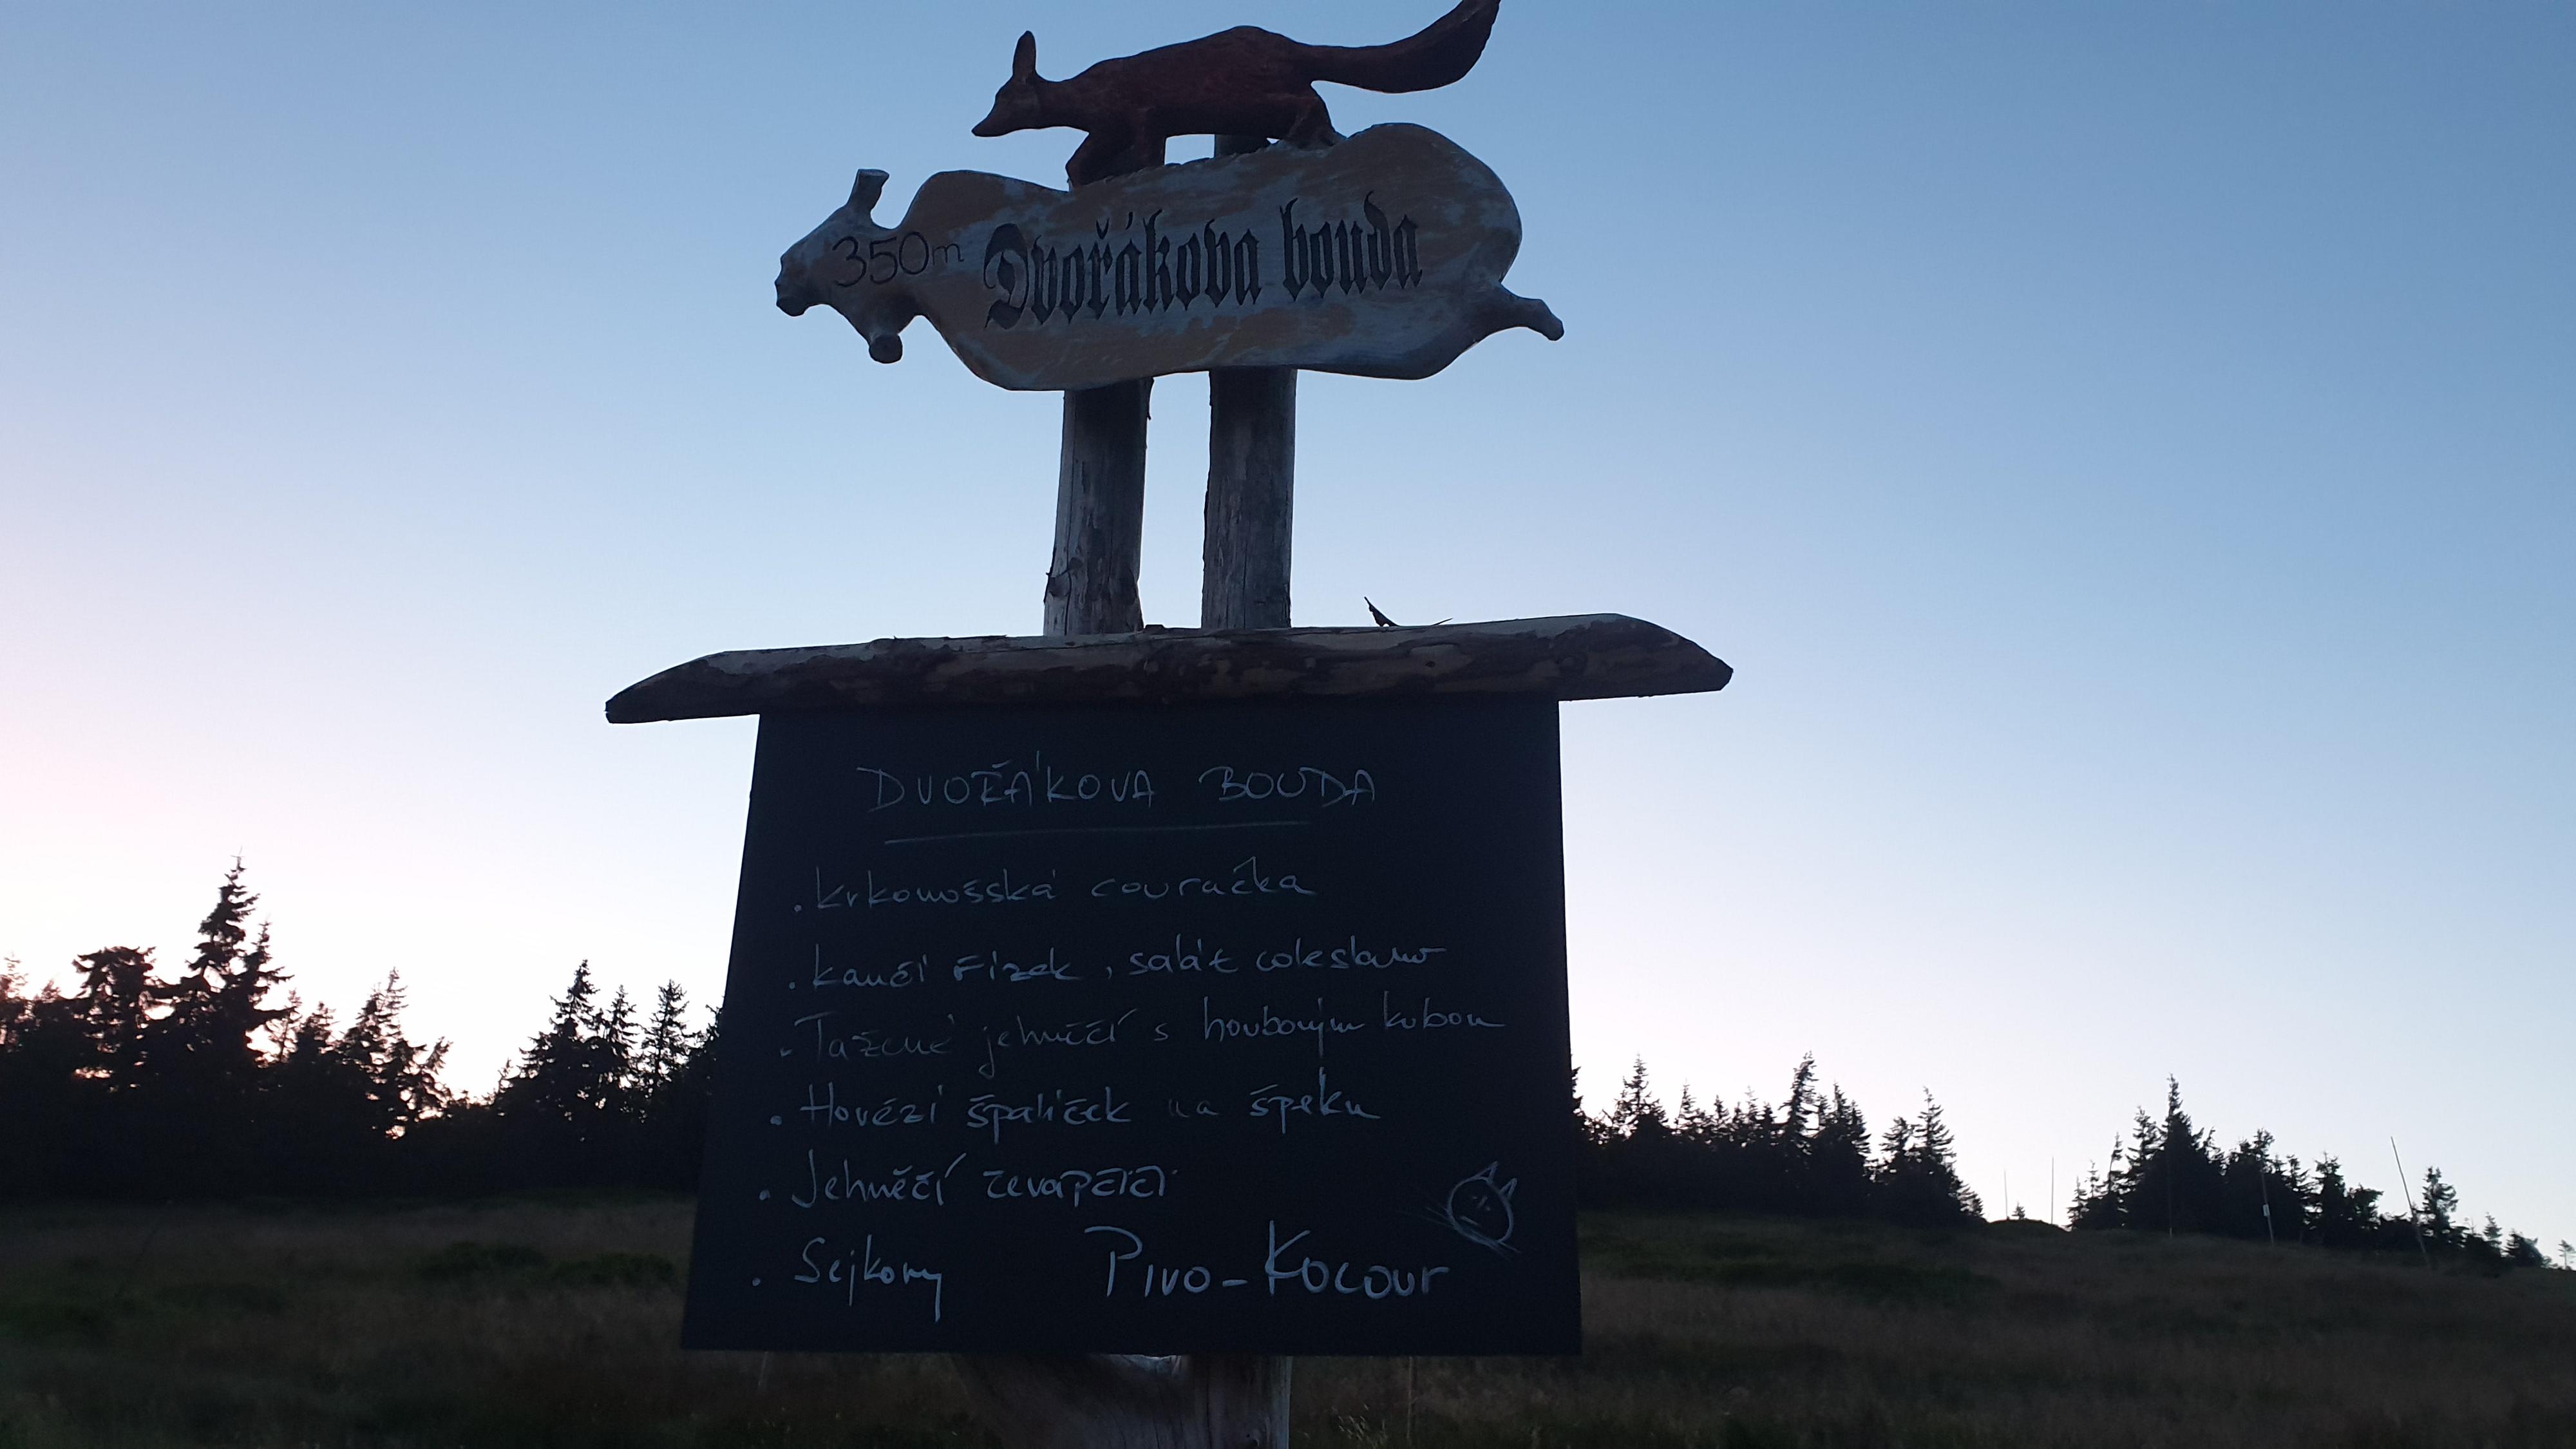 350m Dvořákova bouda
DVOŘÁKOVA BOUDA
. krkonošská couračka
. kančí Fízek, salát coleslaw
. Tažené jehněčí s houbovým kubou
. Hovězí špalíček na špeku
. Jehněčí čevapčiči
. Sejkory Pivo-Kocour